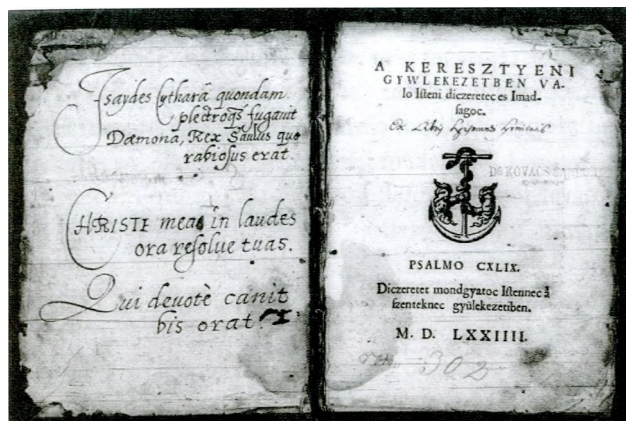 Isaydes Cytharā quondam
plectroqs fugauit
Dæmona, Rex Saulus quo
rabiosus erat.
CHRISTE mea in laudes
ora resolue tuas.
Qui devotè canit
bis orat.
A KERESZTYENI
GYWLEKEZETBEN VA-
lo Isteni diczeretec es Imad-
sagoc.
Ex Libris
Dr KOVACS
PSALMO CXLIX.
Diczeretet mondgyatoc Istennec à
szenteknec gyűlekezetiben.
M. D. LXXIIII.
302